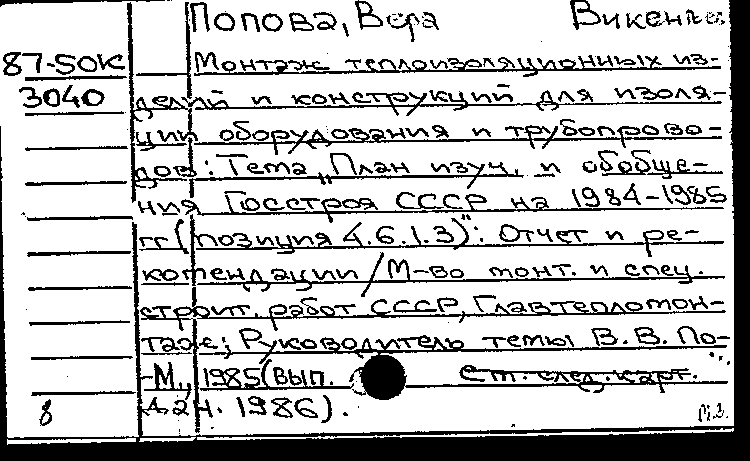 Попова, Вера Викентье
87-50К Монтаж теплоизоляционных из-
3040 делий и конструкций для изоля-
ции оборудования и трубопрово-
дов: Тема „План изуч. и обобще-
ния Госстроя СССР на 1984-1985
гг (позиция 4.6.1.3)": Отчет и ре-
комендации/М-во монт. и спец.
строит. работ СССР, Главтепломон-
таж; Руководитель темы В.В. По-
-М., 1985(вып. См. след. карт. ...
8 дан. 1986).